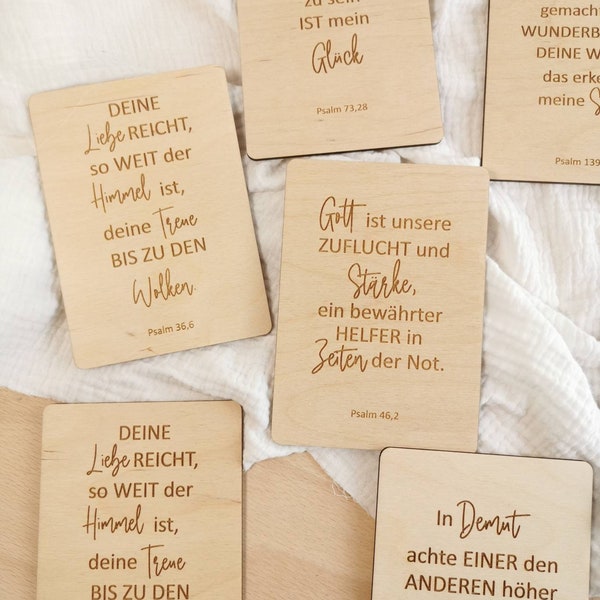 DEINE
Liebe REICHT,
so WEIT der
Himmel ist,
deine Treue
BIS ZU DEN
Wolken.
Psalm 36,6
zu sein
IST mein
Glück
Psalm 73,28
gemacht
WUNDERB
DEINE W
das erke
meine S
Psalm 139
Gott ist unsere
ZUFLUCHT und
Stärke,
ein bewährter
HELFER in
Zeiten der Not.
Psalm 46,2
DEINE
Liebe REICHT,
so WEIT der
Himmel ist,
deine Treue
BIS ZU DEN
In Demut
achte EINER den
ANDEREN höher